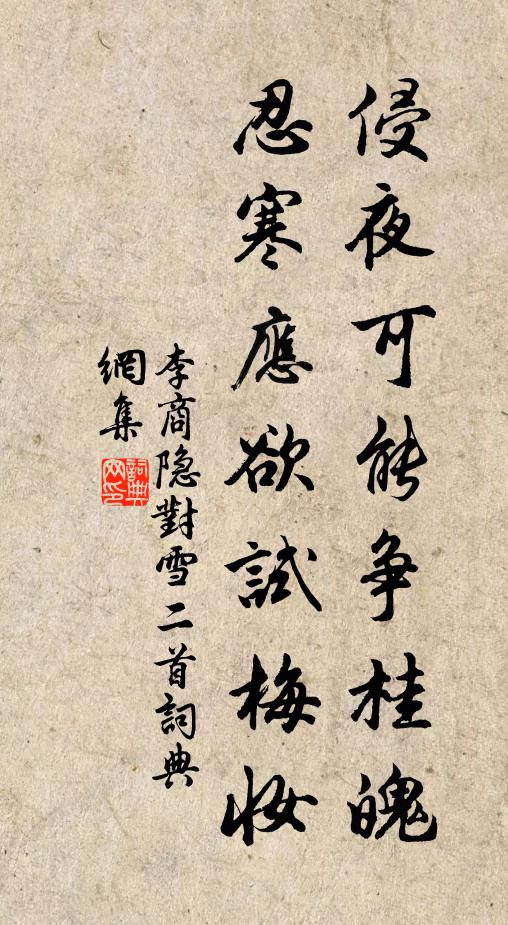 侵夜可能争桂魄
忍寒應欲試梅妆
李商隐對雪二首詞典
網集
詞典網印